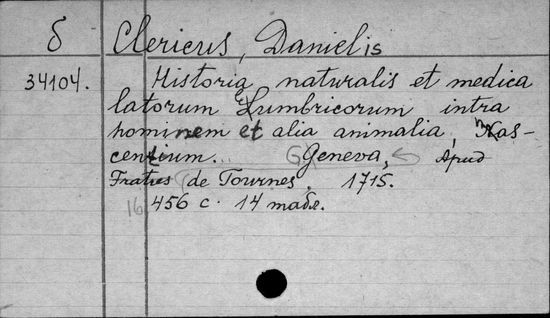 б Clericus, Danielis
34104. Historia naturalis et medica
latorum Lumbricorum intra
hominem et alia animalia, Nas-
centium... Geneva, Apud
Fratres de Tournes, 1715.
16 456 с. 14 табл.